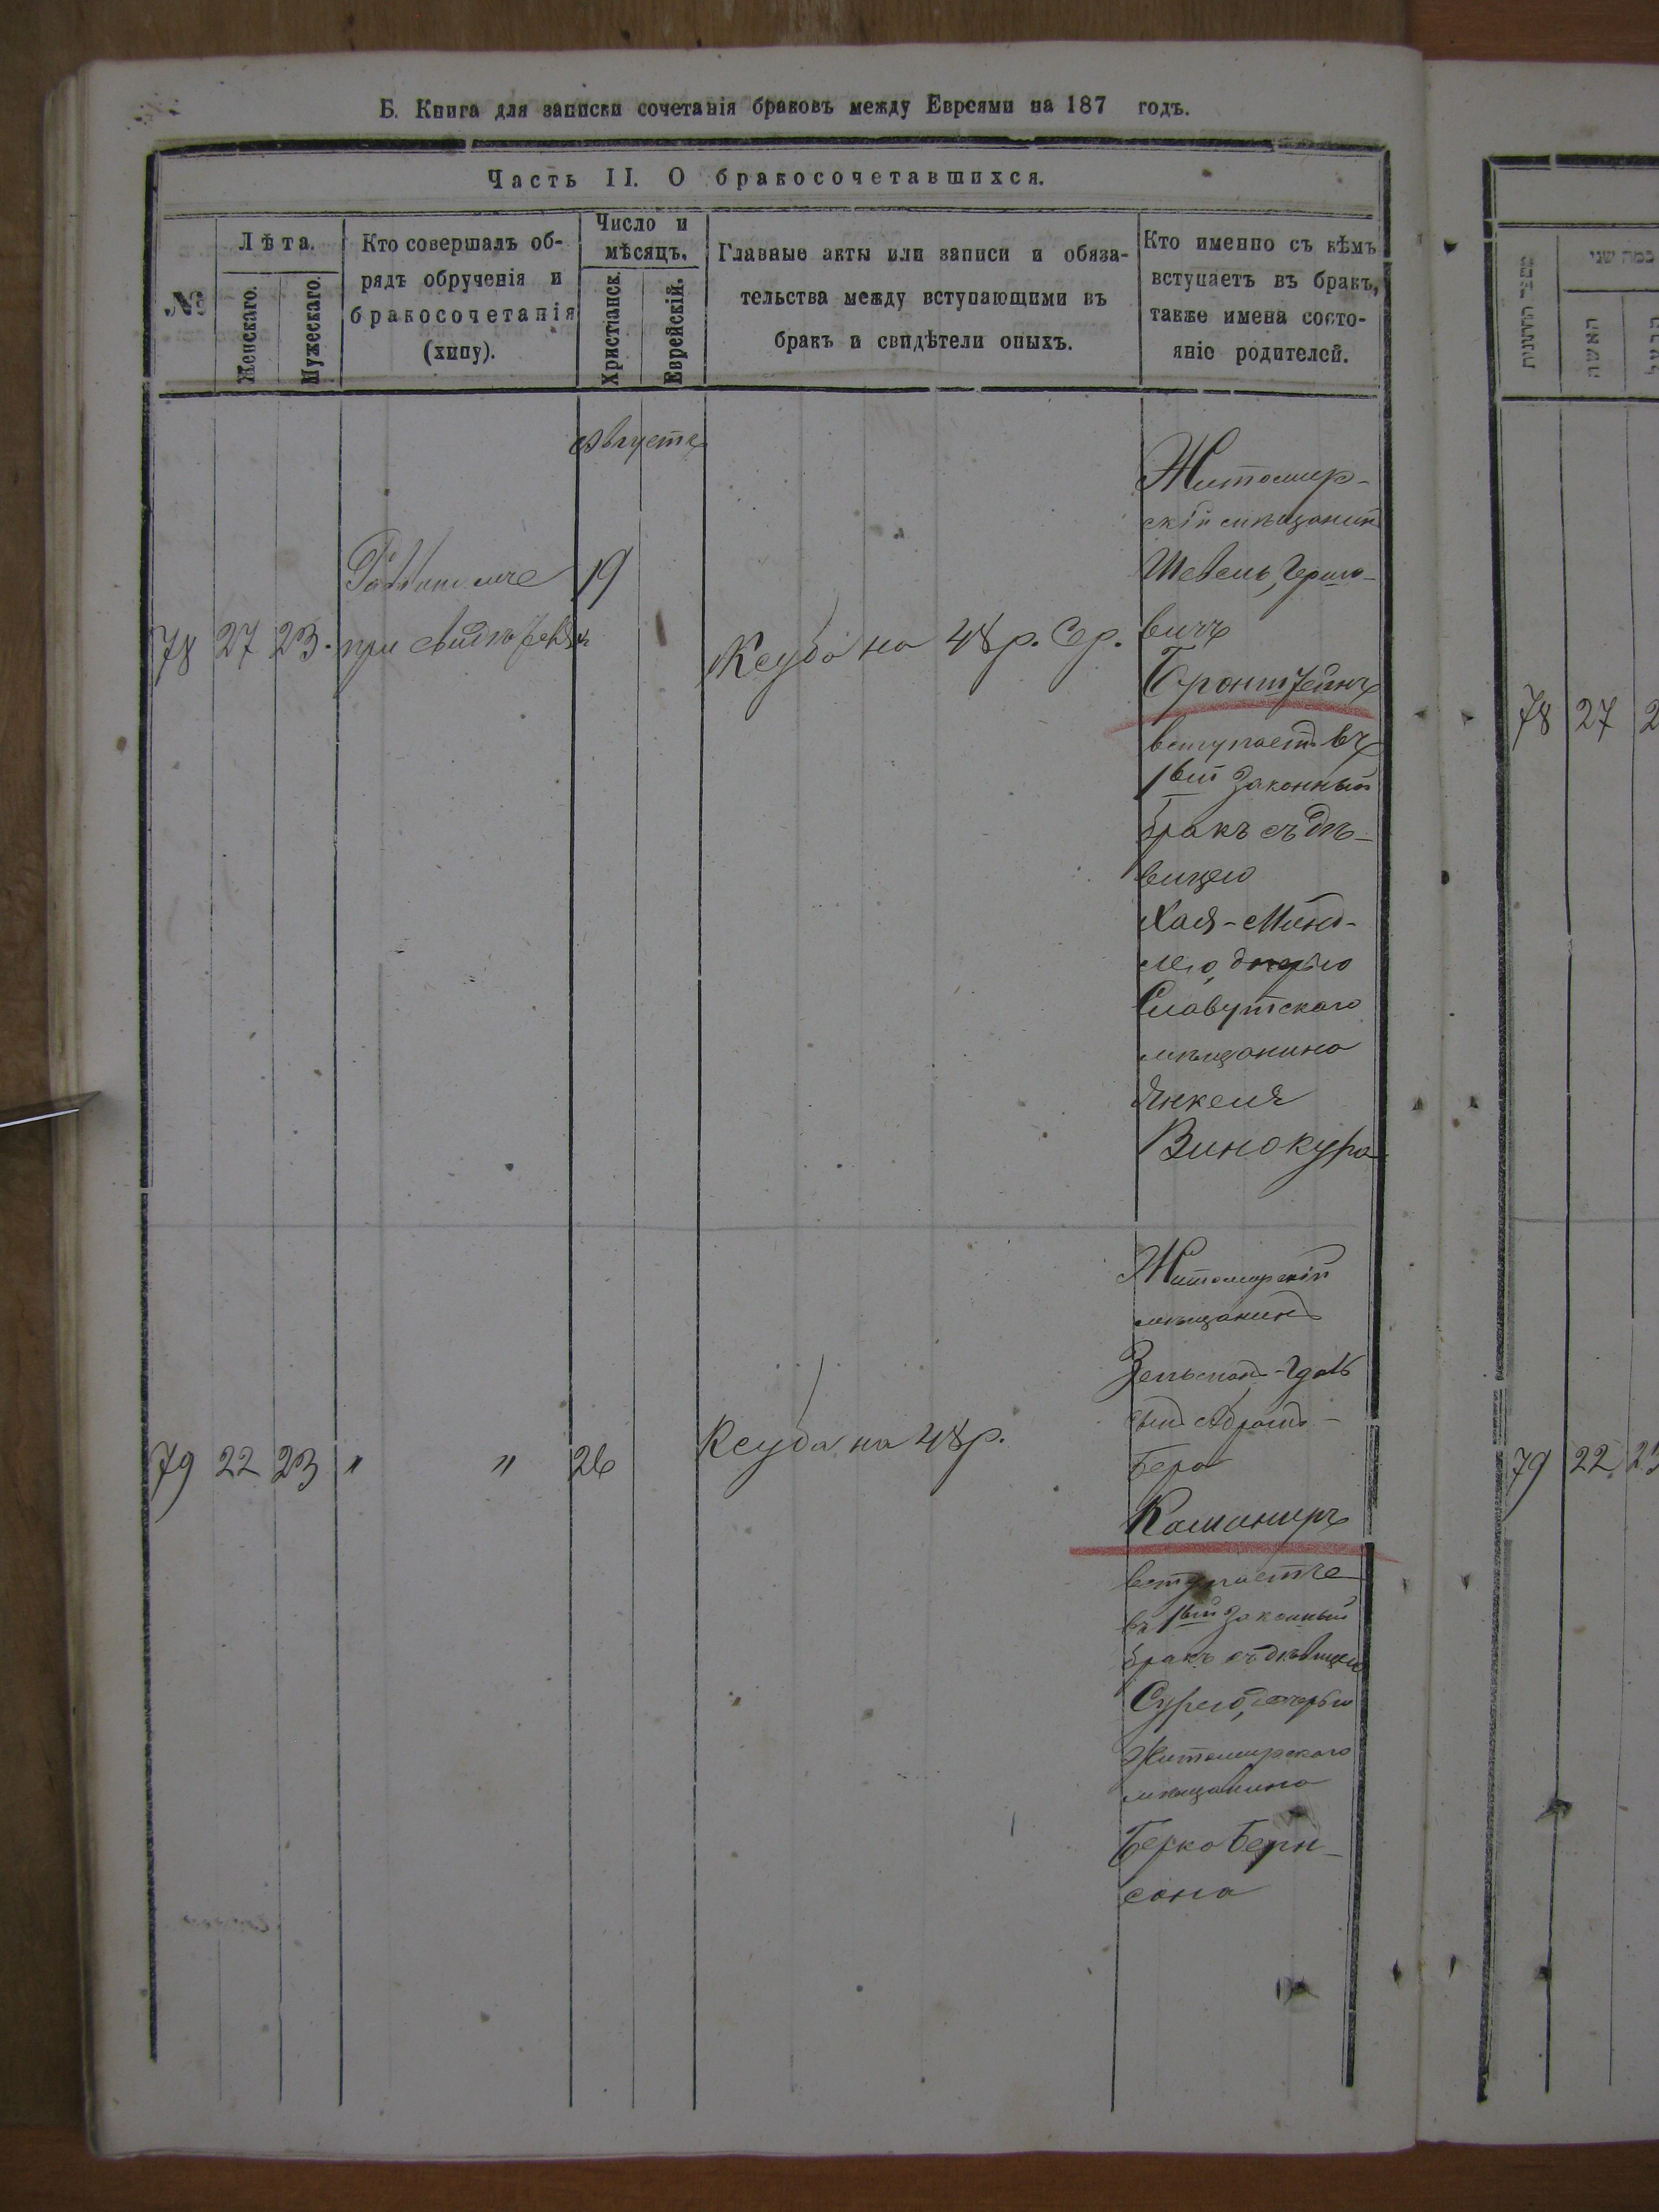 Б. Книга для записки сочетанія браковъ между Евреями на 187 годъ.
Часть II. О бракосочетавшихся.
№
Лѣта.
Женскаго.
Мужескаго.
Кто совершалъ об-
рядъ обрученія и
бракосочетанія
(хупу).
Число и
мѣсяцъ.
Христіанск.
Еврейскій.
Главные акты или записи и обяза-
тельства между вступающими въ
бракъ и свидѣтели оныхъ.
Кто именно съ кѣмъ
вступаетъ въ бракъ,
также имена состо-
яніе родителей.
Августа
78 27 23.
при
19
Ксуба на 48 р. Сер.
Житомир-
скій мѣщанинъ
Шевель Гершо-
вичъ
Бронштейнъ
вступаетъ въ
1вый законный
бракъ съ дѣ-
вицею
Хая-Минд-
лею, дочерью
Славутскаго
мѣщанина
Янкеля
Винокура
79 22 23 " " 26
Ксуба на 48 р.
Житомирскій
мѣщанинъ
Зельманъ-
сынъ Абрамъ-
Бера
Кошониръ
вступаетъ
въ 1вый законный
бракъ съ дѣвицею
Сурею, дочерью
Житомирскаго
мѣщанина
Берко Берн-
сона
מספר החתונות
כמה שני
האשה
78 27 2
79 22 23